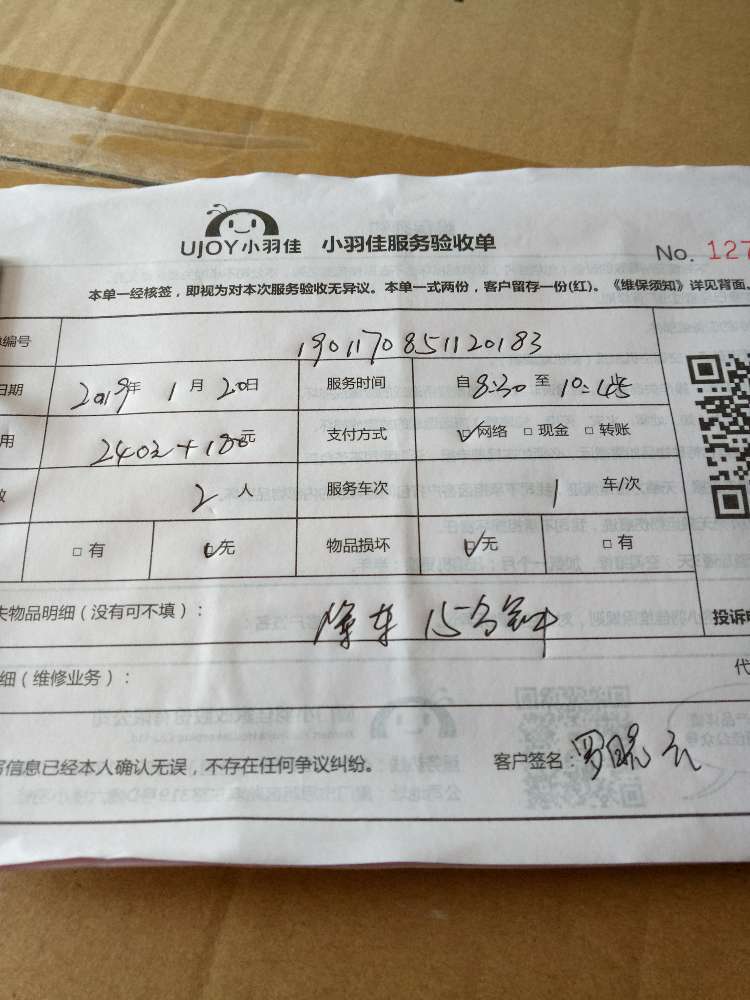 UJOY小羽佳 小羽佳服务验收单
No. 127
本单一经核签，即视为对本次服务验收无异议。本单一式两份，客户留存一份(红)。《维保须知》详见背面。
编号 1901170851120183
日期 2019年 1月 20日 服务时间 自 8:30 至 10:45
用 240元+180元 支付方式 ☑网络 □现金 □转账
数 2人 服务车次 1 车/次
□有 ☑无 物品损坏 ☑无 □有
失物品明细（没有可不填）： 15分钟
投诉
细（维修业务）：
代
写信息已经本人确认无误，不存在任何争议纠纷。 客户签名：罗晓